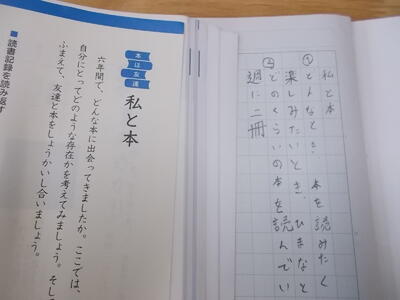 本は友達
私と本
六年間で、どんな本に出会ってきましたか。ここでは、
自分にとってどのような存在かを考えてみましょう。そし
ふまえて、友達と本をしょうかいし合いましょう。
■読書記録を読み返す
私と本
①どんなとき、本を読みたく
楽しみたいとき、ひまなと
②どのくらいの本を読んでい
週に二冊